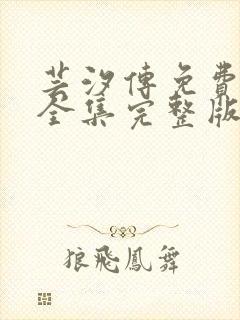 芸汐傳免費
全集完整版
狼飛鳳舞